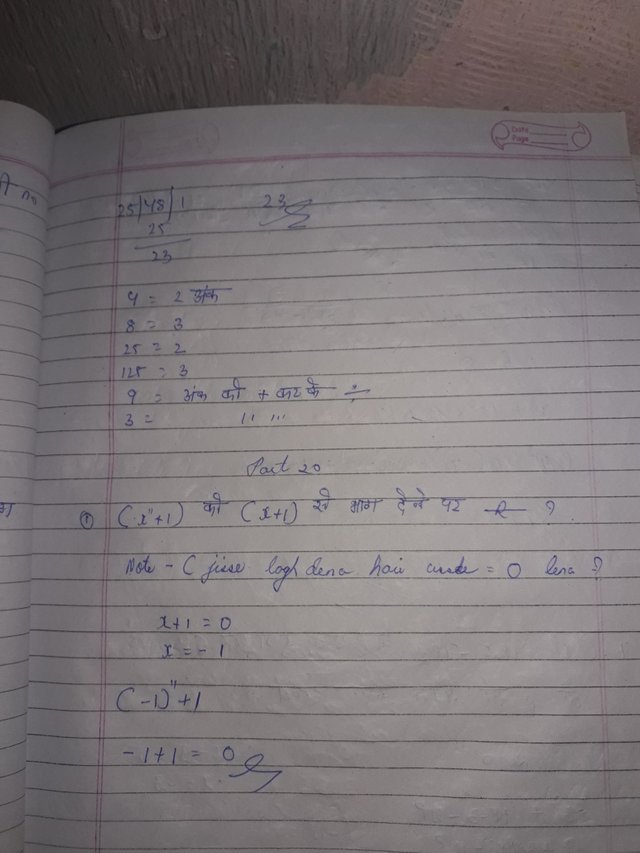 Date
Page
25/48/1 23
25
23
4 = 2 अंक
8 = 3
25 = 2
125 = 3
9 = अंक को + करके ÷
3 = 11 111
Part 20
① (x¹¹+1) को (x+1) से भाग देने पर R ?
Note - ( jisse dena hai = 0 lena ?
x+1 = 0
x = -1
(-1)¹¹+1
-1+1 = 0